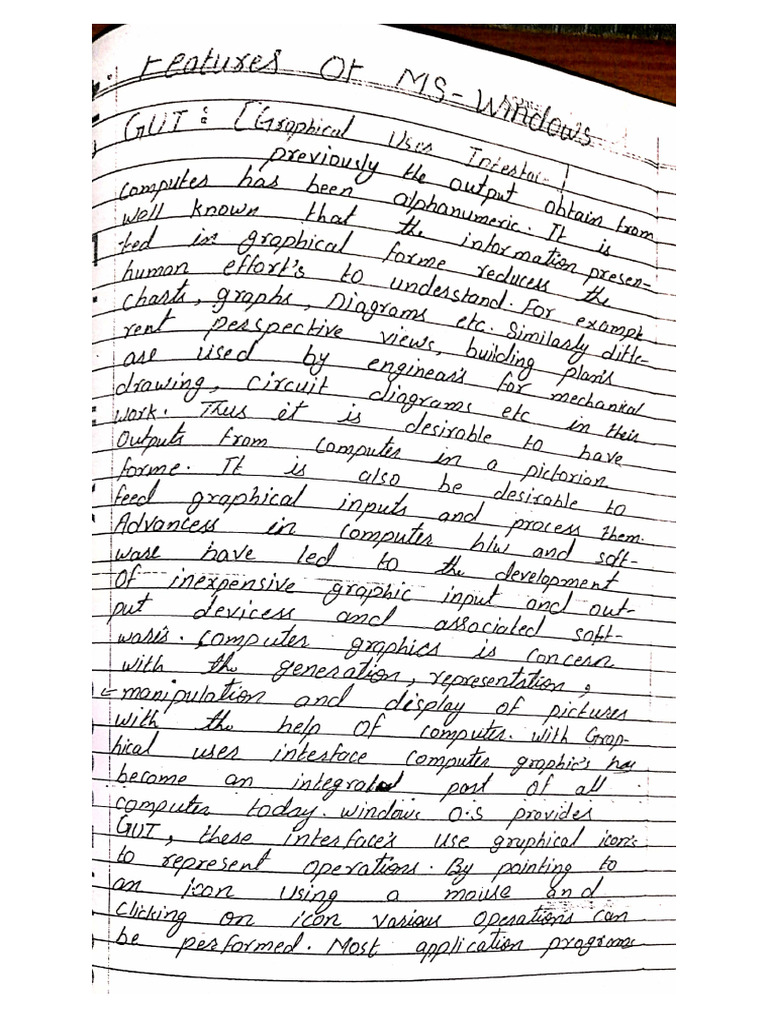 Features Of MS-Windows
GUI : [Graphical User Interfac-]
previously the output obtain from
computer has been alphanumeric. It is
well known that the information presen-
ted in graphical forme reduces the
human effort's to understand. For exampl
charts, graphs, Diagrams etc. Similarly diffe-
rent perspective views, building plan's
are used by engineer's for mechanical
drawing, circuit diagrams etc in their
work. Thus it is desirable to have
Outputs from computer in a pictorian
forme. It is also be desirable to
feed graphical inputs and process them.
Advancess in computer h/w and soft-
ware have led to the development
Of inexpensive graphic input and out-
put devicess and associated soft-
wares. Computer graphics is concern
with the generation, representation,
manipulation and display of pictures
with the help Of computer. With Grap-
hical user interface computer graphic's has
become an integrated part of all
computer today. Windows O.S provides
GUI, these interface's use graphical icon's
to represent operations. By pointing to
an icon using a mouse and
clicking on icon various operations can
be performed. Most application programs